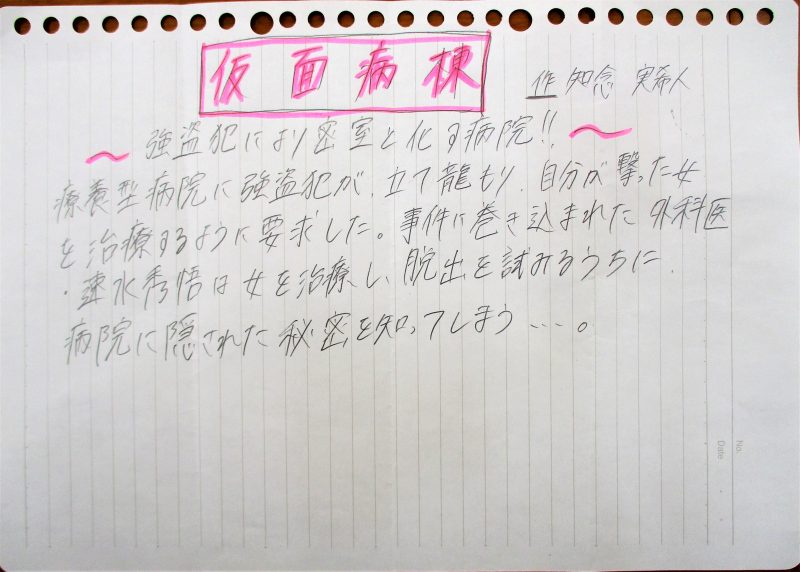 仮面病棟
作 知念 実希人
〜 強盗犯により密室と化す病院!! 〜
療養型病院に強盗犯が、立て龍もり、自分が撃った女
を治療するように要求した。事件に巻き込まれた外科医
・速水秀悟は女を治療し、脱出を試みるうちに、
病院に隠された秘密を知ってしまう…。
No.
Date